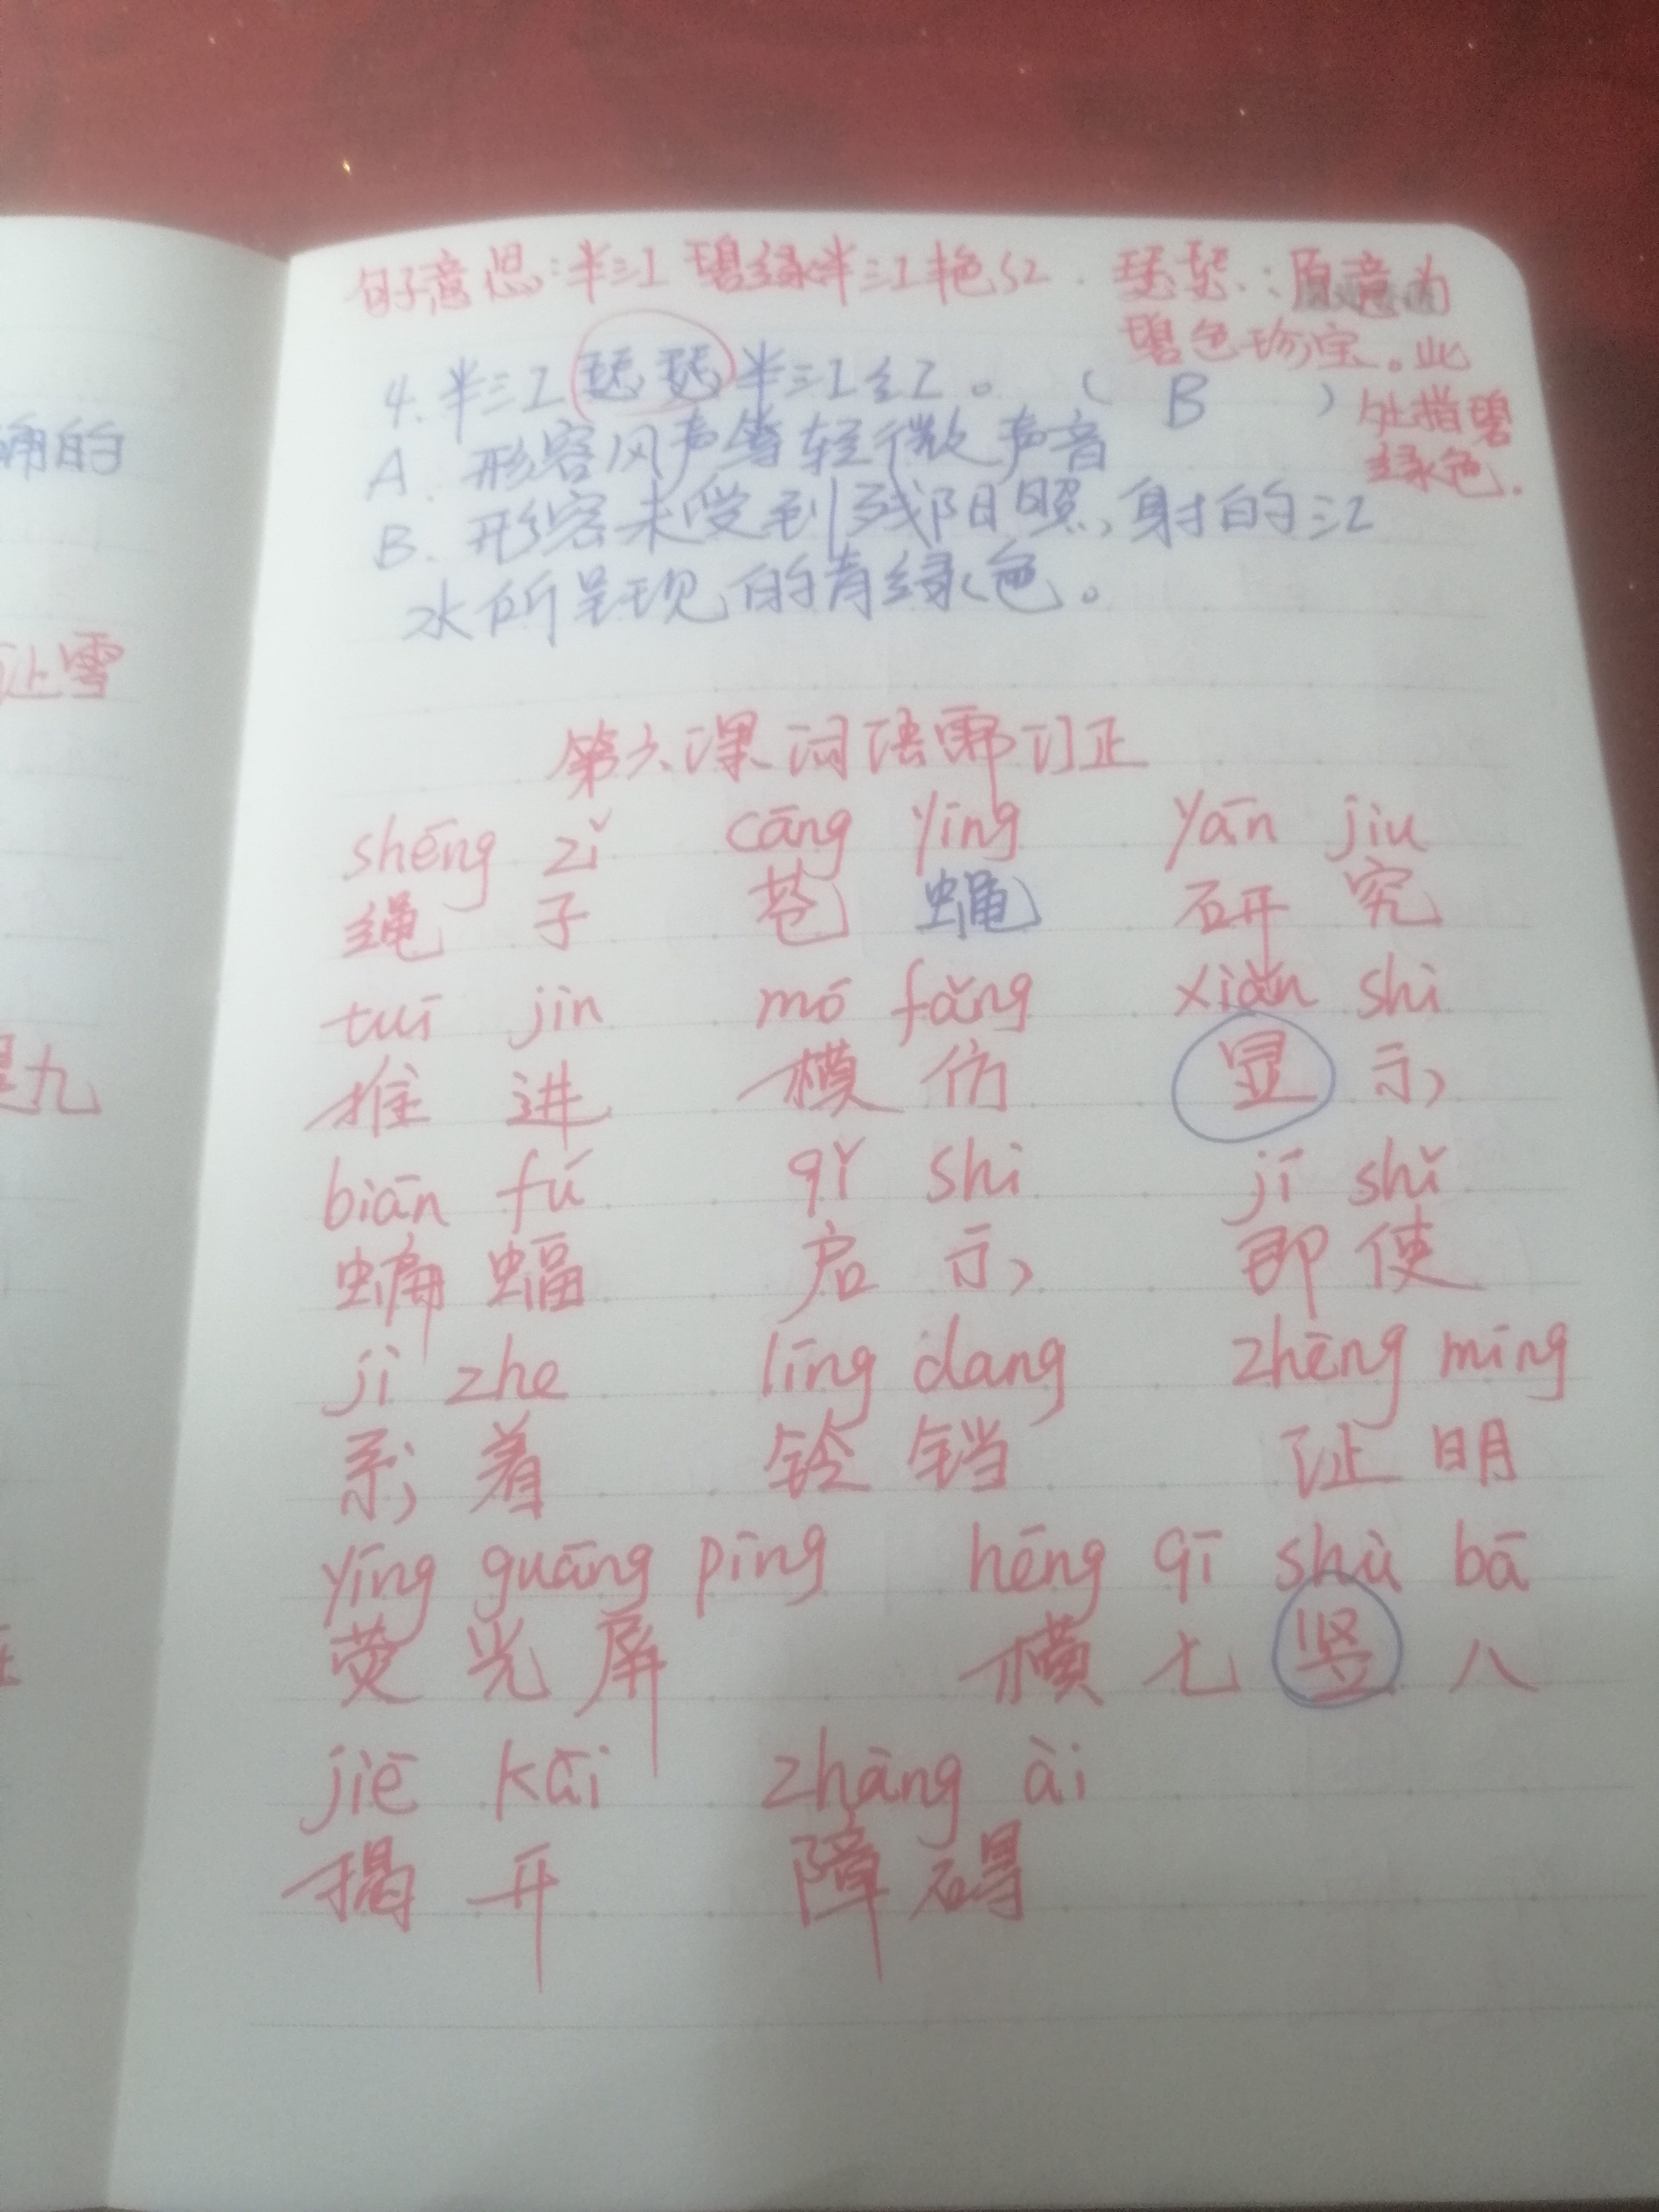 句子意思:半江碧绿半江艳红. 瑟瑟:原意为
碧色珍宝。此
处指碧
绿色.
4.半江瑟瑟半江红。 ( B )
A. 形容风声等轻微声音
B. 形容未受到残阳照射的江
水所呈现的青绿色。
第六课词语 订正
shēng zǐ cāng yīng yān jiu
绳 子 苍 蝇 研 究
tuī jìn mó fǎng xiǎn shì
推 进 模 仿 显 示
biān fú qǐ shì jí shǐ
蝙 蝠 启 示 即 使
jì zhe līng dang zhēng mīng
系 着 铃 铛 证 明
yīng guāng pīng hēng qī shù bā
荧 光 屏 横 七 竖 八
jiē kāi zhāng ài
揭 开 障 碍
确的
让雪
是九